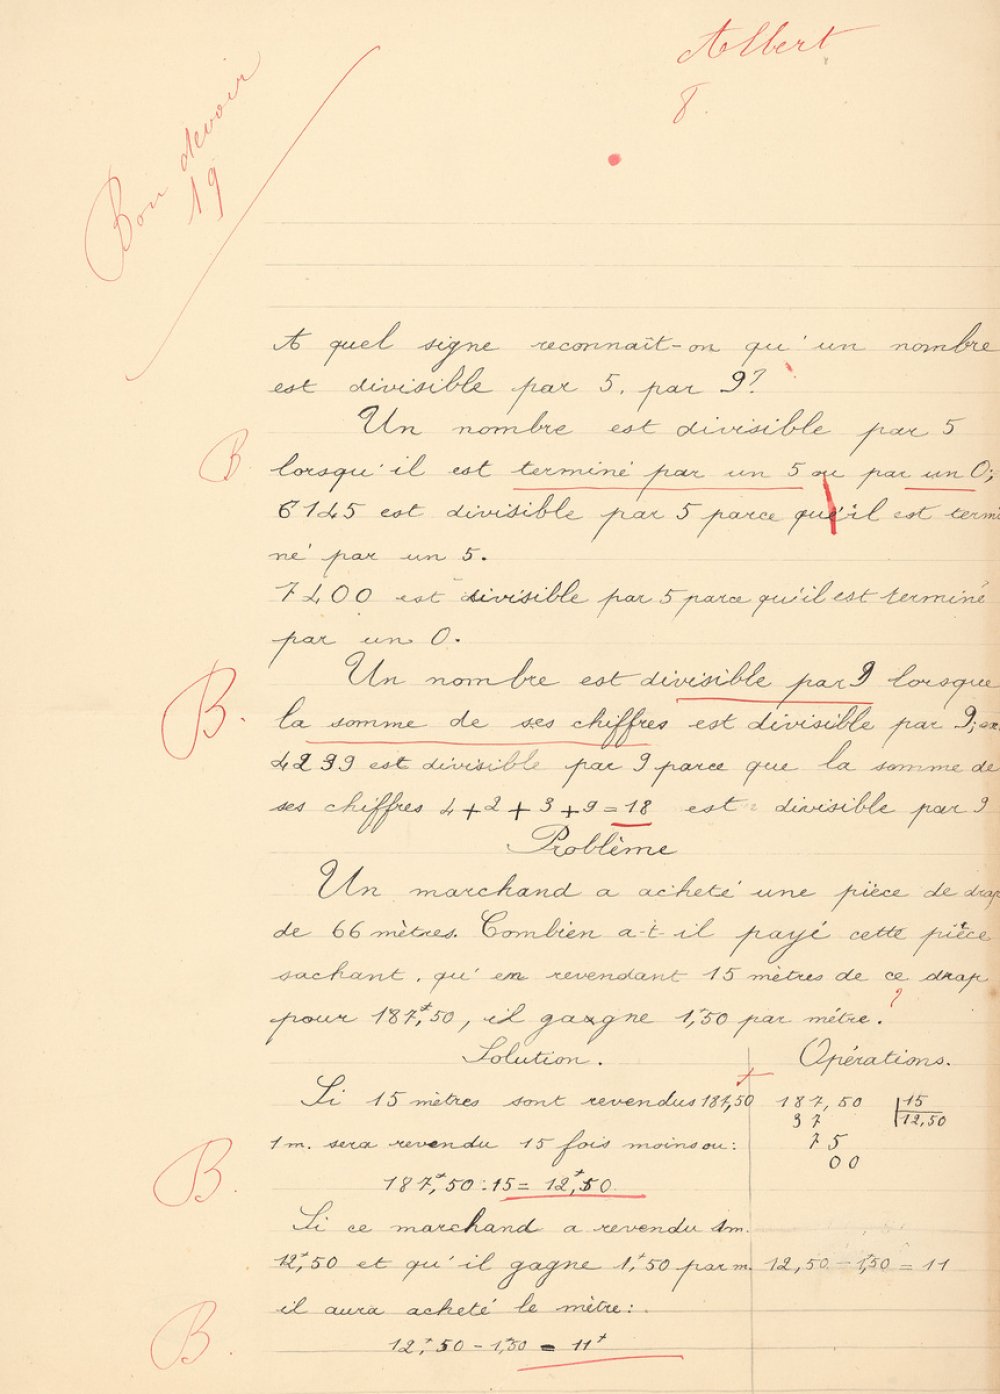 Albert
8.
Bon devoir
19
A quel signe reconnaît-on qu'un nombre
est divisible par 5, par 9?
Un nombre est divisible par 5
B
lorsqu'il est terminé par un 5 ou par un 0;
6145 est divisible par 5 parce qu'il est termi
né par un 5.
7400 est divisible par 5 parce qu'il est terminé
par un 0.
Un nombre est divisible par 9 lorsque
B.
la somme de ses chiffres est divisible par 9; ex.
4239 est divisible par 9 parce que la somme de
ses chiffres 4+2+3+9=18 est divisible par 9
Problème
Un marchand a acheté une pièce de drap
de 66 mètres. Combien a-t-il payé cette pièce
sachant, qu'en revendant 15 mètres de ce drap
pour 187f,50, il gagne 1,50 par mètre. ?
Solution.
Opérations.
Si 15 mètres sont revendus 187,50
187,50 15
37 12,50
1m. sera revendu 15 fois moins ou:
75
00
B.
187f,50 : 15 = 12f,50.
Si ce marchand a revendu 1m.
12f,50 et qu'il gagne 1f,50 par m.
12,50 - 1,50 = 11
il aura acheté le mètre:
B.
12f,50 - 1,50 = 11f